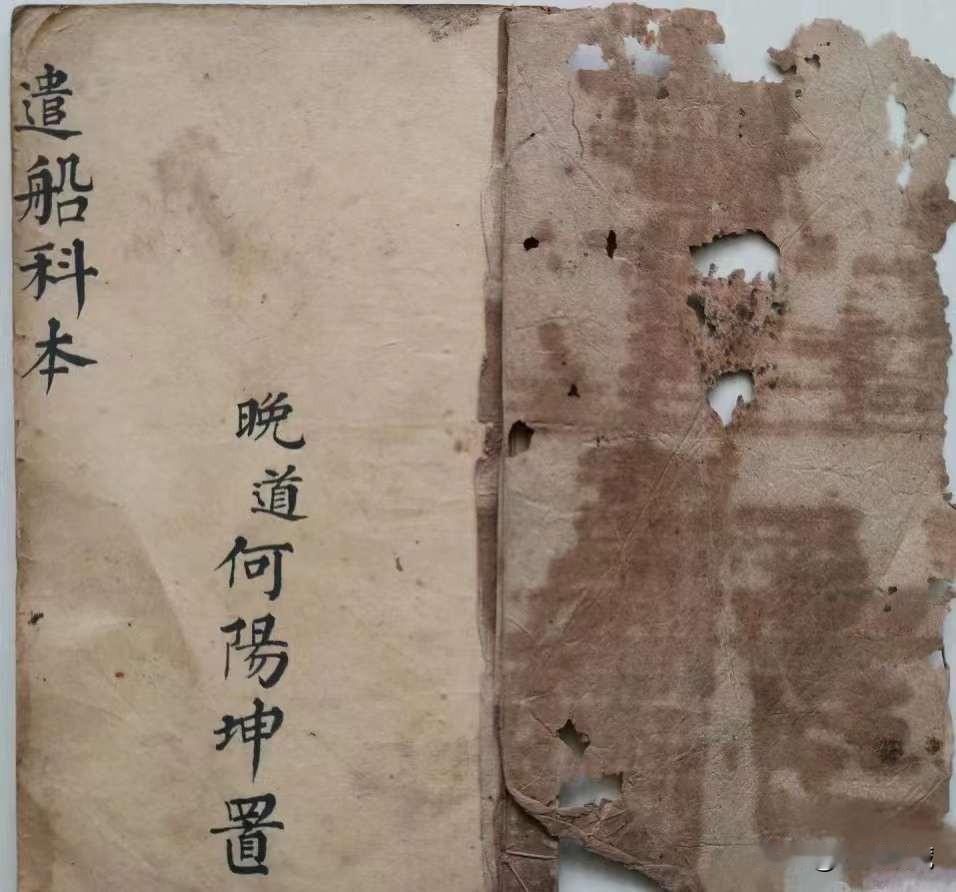 遣船科本
晚道何陽坤置